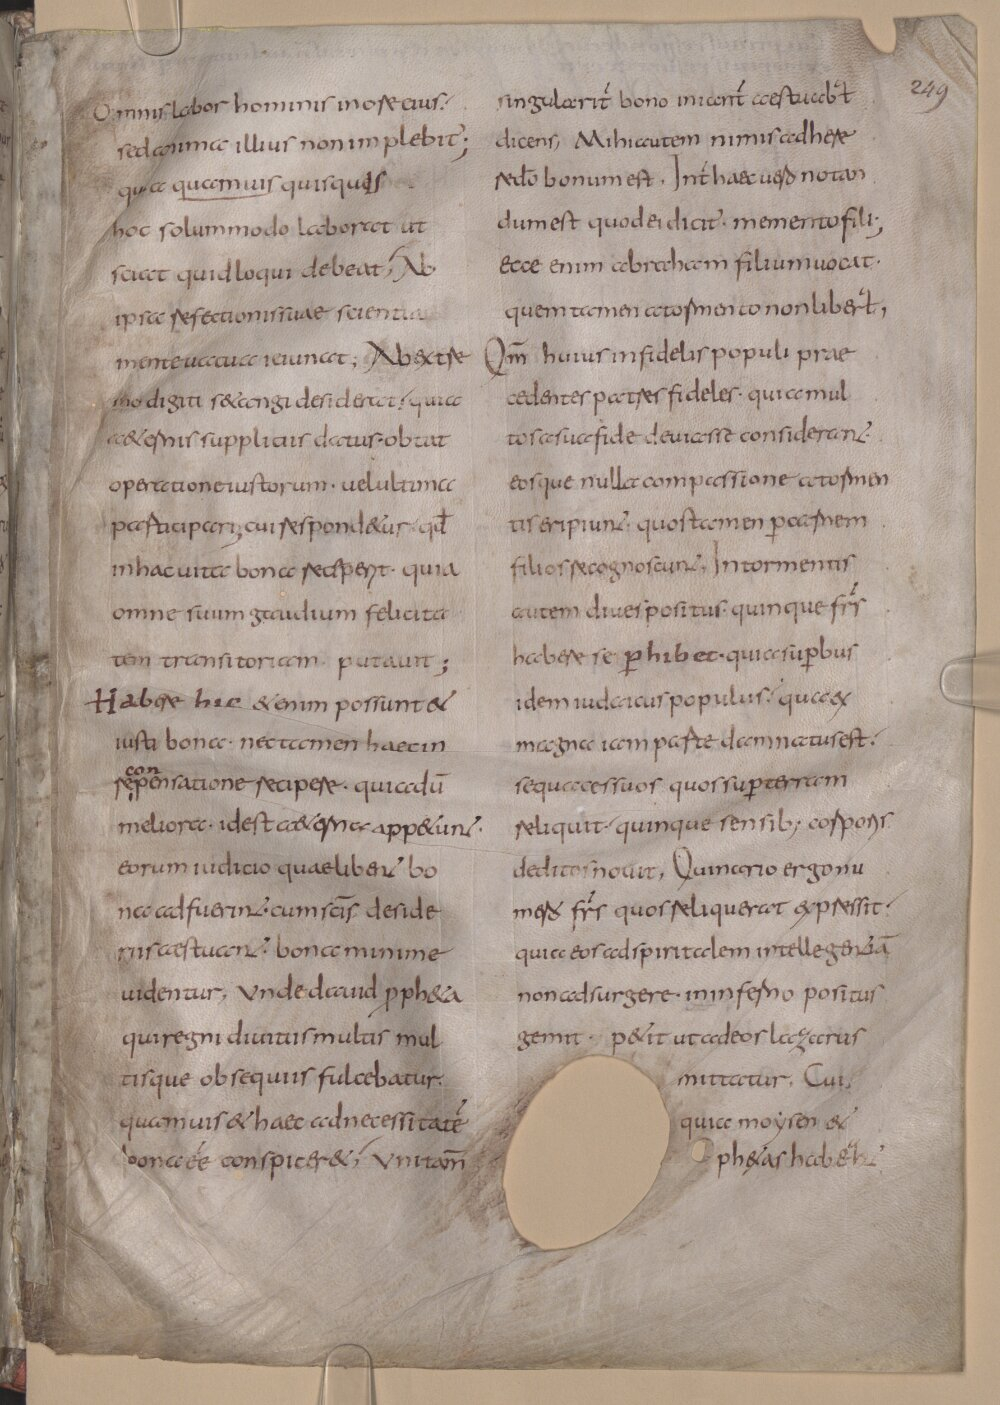 249
Omnis labor hominis in ore eius.
sed anima illius non implebit̄;
quia quamuis quisquis
hoc solummodo laboret ut
sciat quid loqui debeat; Ab
ipsa refectionis suae scientia
mente uacua ieiunat; Ab extre
mo digiti se tangi desiderat. quia
aeternis suppliciis datus. optat
operatione iustorum. uel ultima
participari; cui respondetur. qđ
in hac uita bona recepert. quia
omne suum gaudium felicita
tem transitoriam putauit;
Habere hic etenim possunt et
iusti bona. nec tamen haec in
recompensatione recipere. quia dū
meliora. id est aeterna appetunt.
eorum iudicio quaelibet bo
na adfuerint. cum scīs deside
riis aestuant. bona minime
uidentur, Vnde dauid ꝓpheta
qui regni diuitiis multis mul
tisque obsequiis fulcebatur.
quamuis et haec ad necessitatē
bona eē conspiceret; Vni tam̄
singularit̄ bono inicant̄ aestuabat
dicens, Mihi autem nimis adhere
re dō bonum est, Int̄ haec uero notan
dum est quod ei dicit. memento fili;
ecce enim abraham filium uocat.
quem tamen a tormento non liberat,
Qm̄ huius infidelis populi prae
cedentes patres fideles. quia mul
tos a sua fide deuiasse considerant.
eosque nulla compassione a tormen
tis eripiunt. quos tamen ꝑ carnem
filios recognoscunt, In tormentis
autem diues positus. quinque fr̄s
habere se ꝑhibet. quia suꝑbus
idem iudaicus populus. qui a ex
magna iam parte damnatus est.
sequaces suos quos suꝑ terram
reliquit. quinque sensib; corporis
deditos nouit, Quinario ergo nu
mero fr̄s quos reliquerat expressit.
quia eos ad spiritalem intellegentiā
non adsurgere. in inferno positus
gemit. petit ut ad eos lazarus
mittatur, Cui
quia moysen et
phetas habent